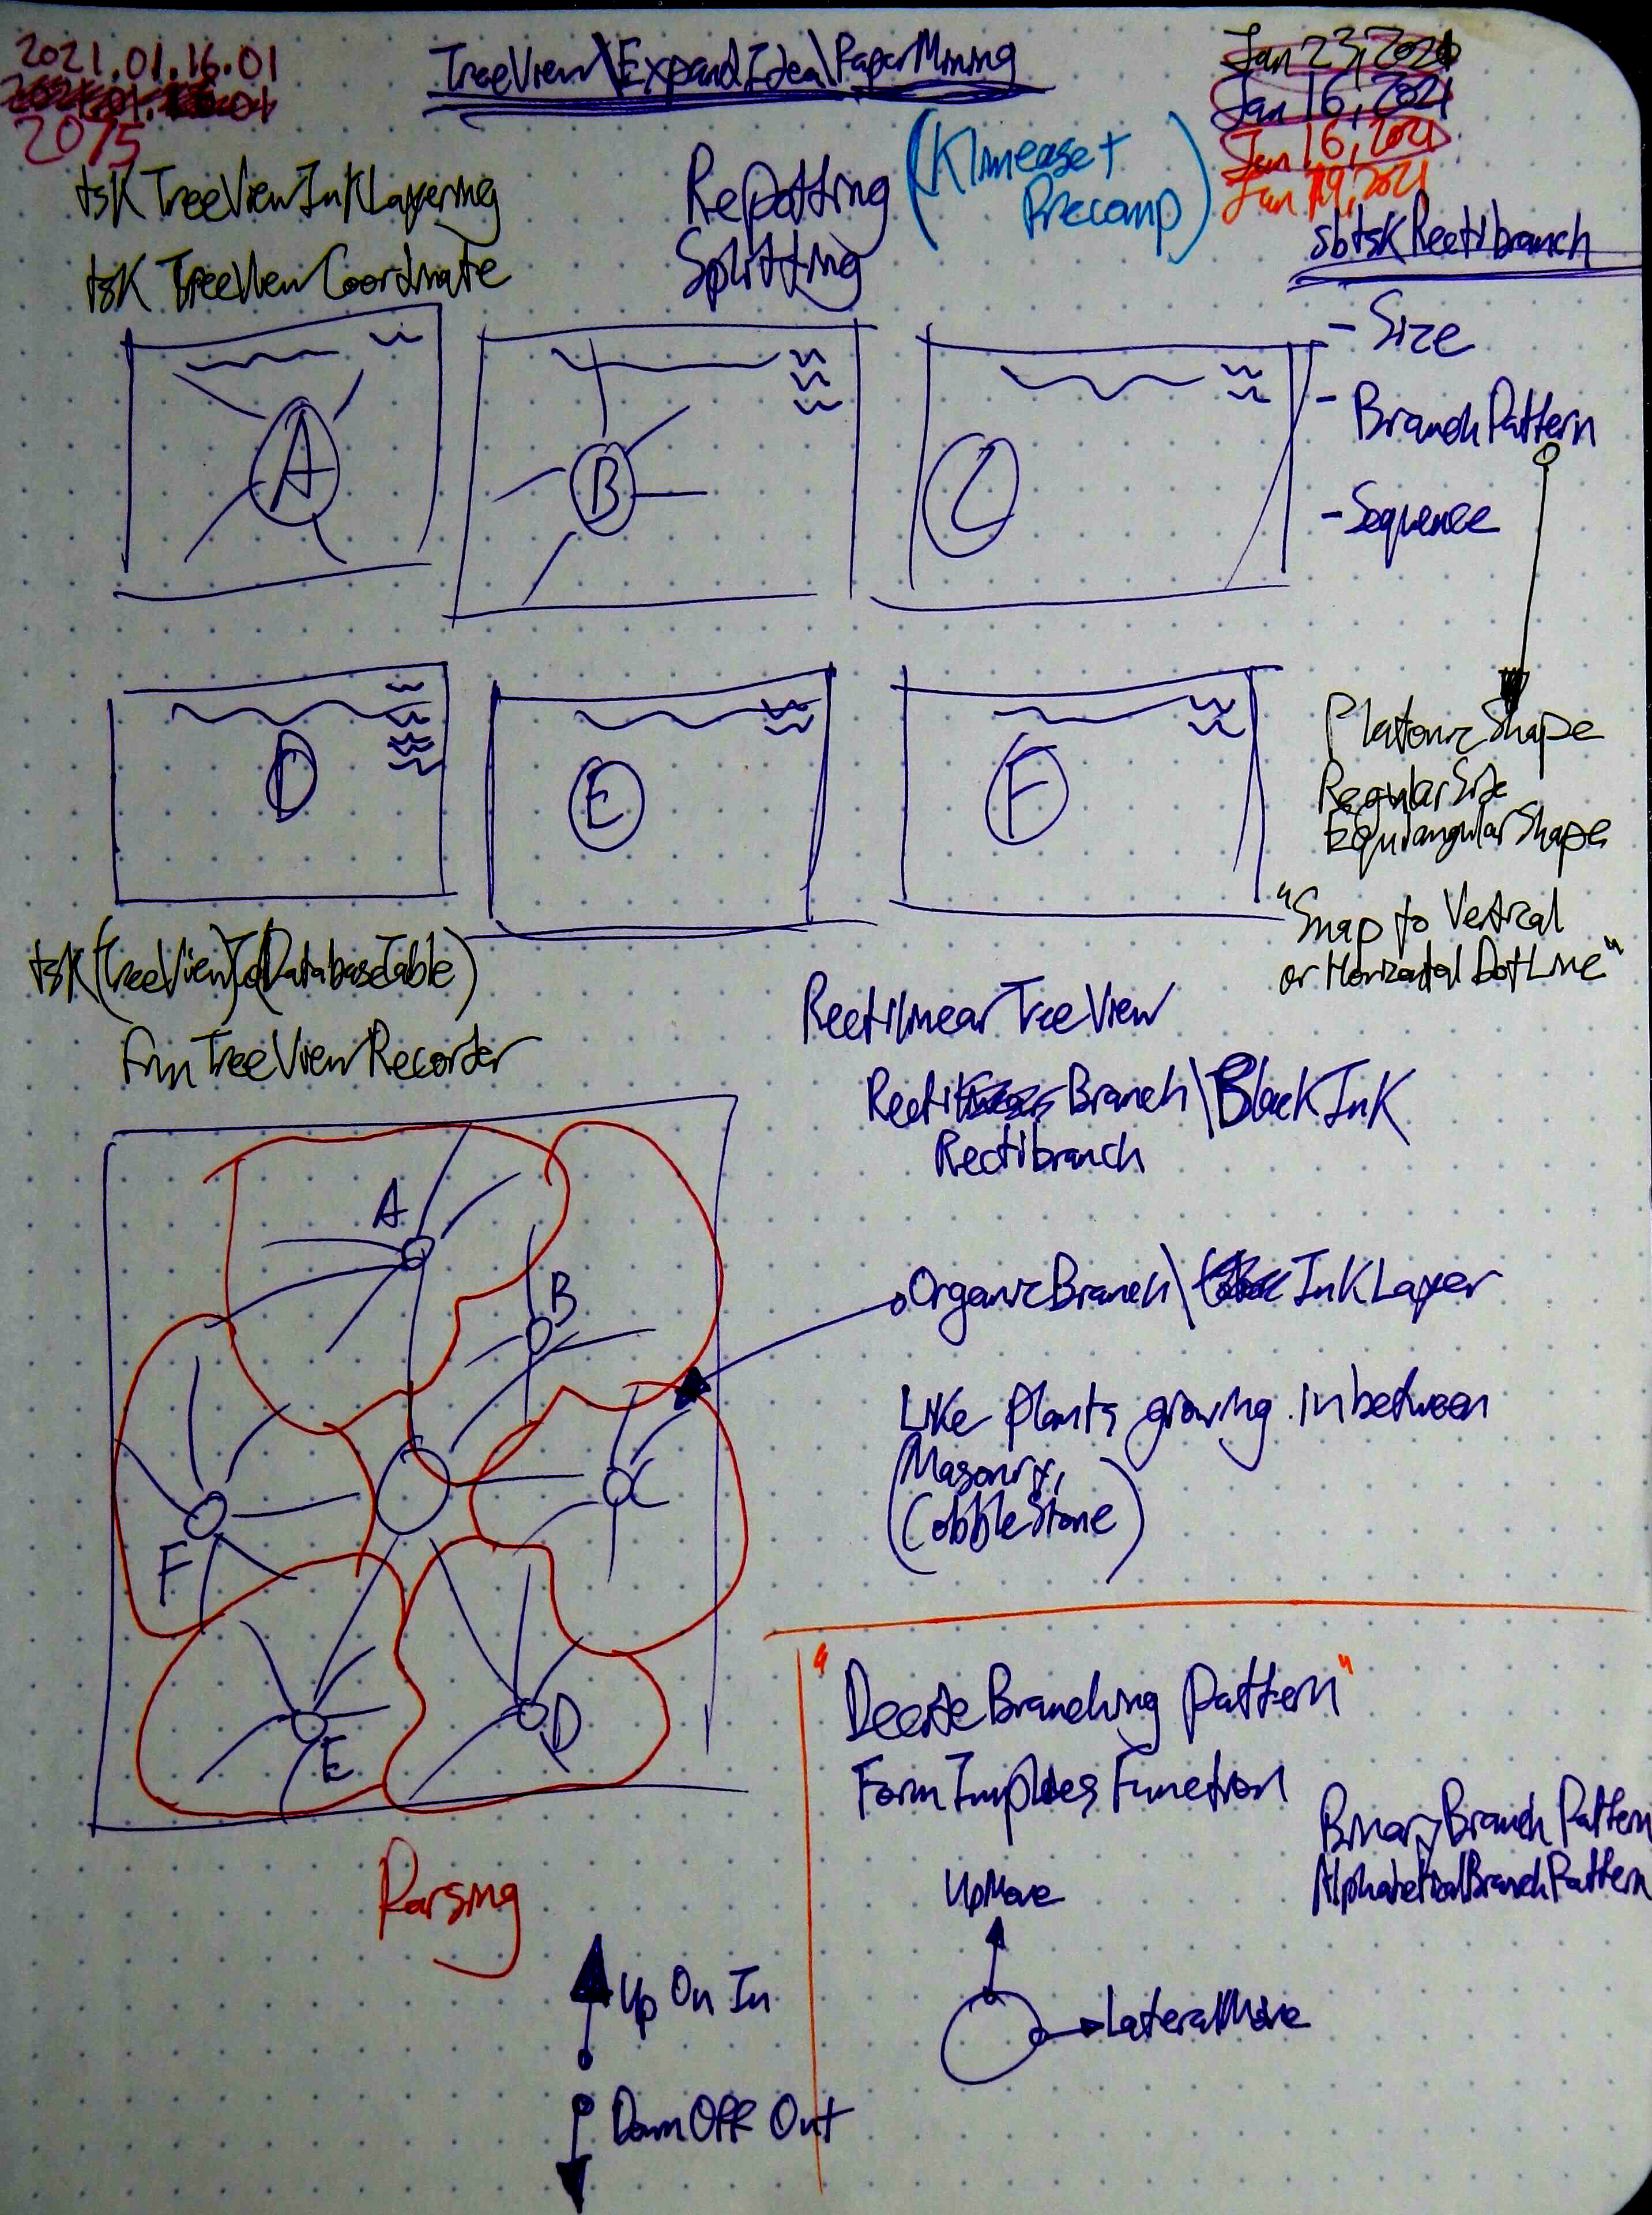 2021.01.16.01
2075
TreeView\ExpandIdea\PaperMining
Jan 23, 2021
Jan 16, 2021
Jan 16, 2021
Jan 19, 2021
tsKTreeViewInkLayering
tsK TreeViewCoordinate
Repotting
Splitting
(Kinease+
Precomp)
sbtsKRectibranch
- Size
- BranchPattern
- Sequence
A
B
C
D
E
F
PlatonicShape
RegularSize
EquiangularShape
"Snap to Vertical
or Horizontal DotLine"
tsK(TreeView)To(DatabaseTable)
frmTreeViewRecorder
RectilinearTreeView
Recti Branch\BlackInk
Rectibranch
OrganicBranch\ InkLayer
Like plants growing inbetween
(Masonry,
Cobblestone)
A
B
C
D
E
F
Parsing
"DecideBranching Pattern"
FormImpliesFunction
BinaryBranchPattern
AlphabeticalBranchPattern
UpMove
LateralMove
Up On In
Down Off Out